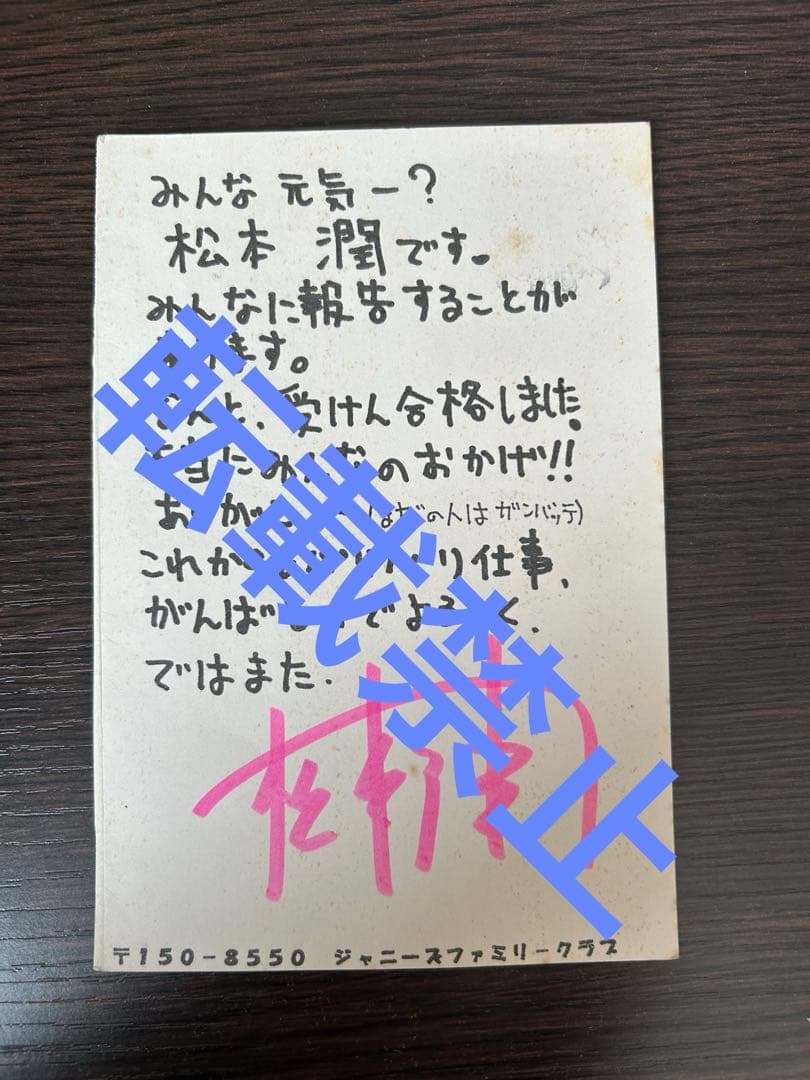 みんな 元気ー?
松本 潤です。
みんなに報告することが
ます。
受けん合格しました。
みんなのおかげ!!
の人は ガンバッテ)
これか り仕事、
がんば でよろ く、
ではまた.
松本潤
〒150-8550 ジャニーズファミリークラブ
転載禁止